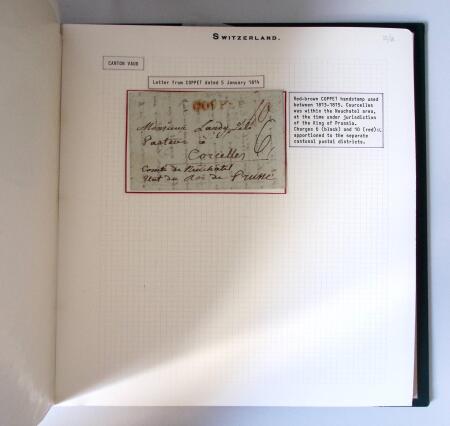 SWITZERLAND.
CANTON VAUD
Letter from COPPET dated 5 January 1814
COPPET
Monsieur Lardy fils
Pasteur à
Corcelles
Comté de Neuchatel
Etat du Roi de Prusse
10
6
Red-brown COPPET handstamp used
between 1813-1815. Courcelles
was within the Neuchatel area,
at the time under jurisdiction
of the King of Prussia.
Charges 6 (black) and 10 (red)
apportioned to the separate
cantonal postal districts.